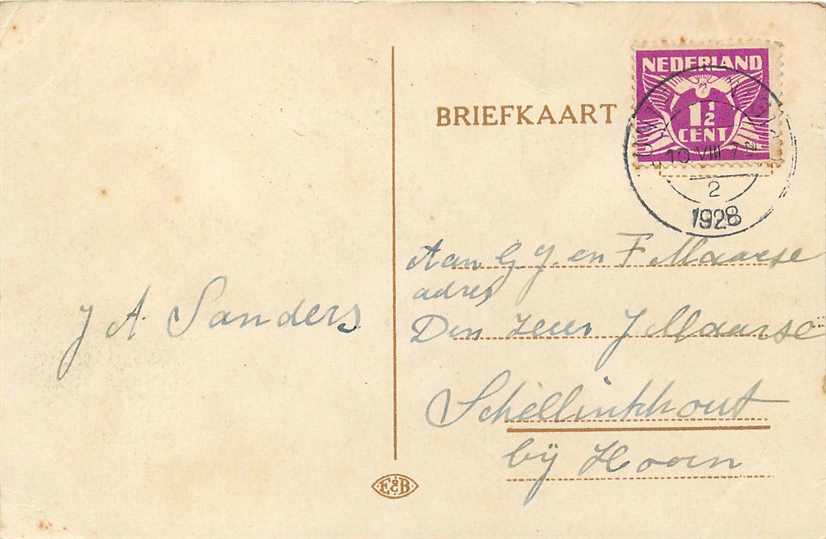 NEDERLAND
1½
CENT
BRIEFKAART
10 VIII
2
1928
Aan G J. en F Maarse
adres
Den Heer J Maarse
J A. Sanders
Schellinkhout
bij Hoorn
E&B